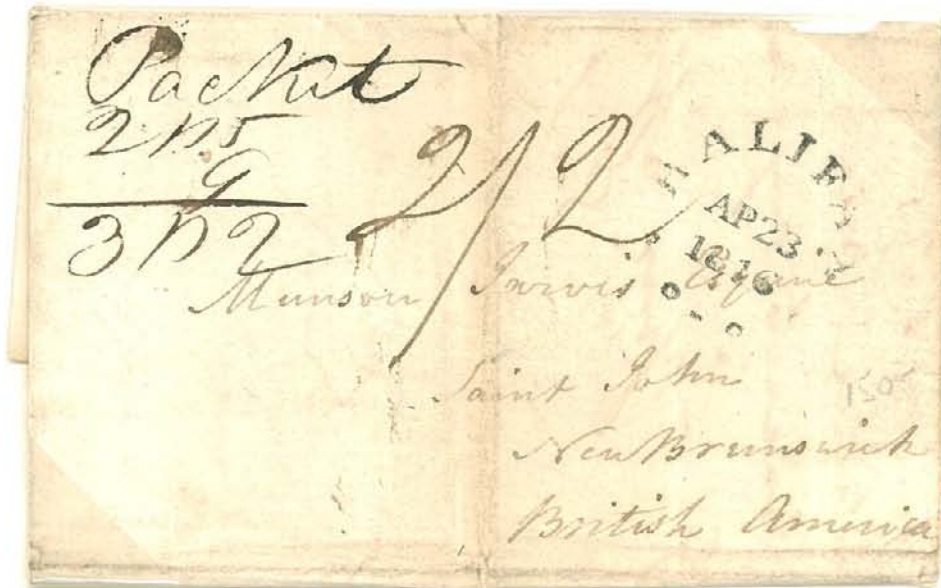 Packet
2 N 5
9
3 N 2
2/2
HALIFAX
AP 23
1816
Munson Jarvis Esquire
Saint John
New Brunswick
British America
150